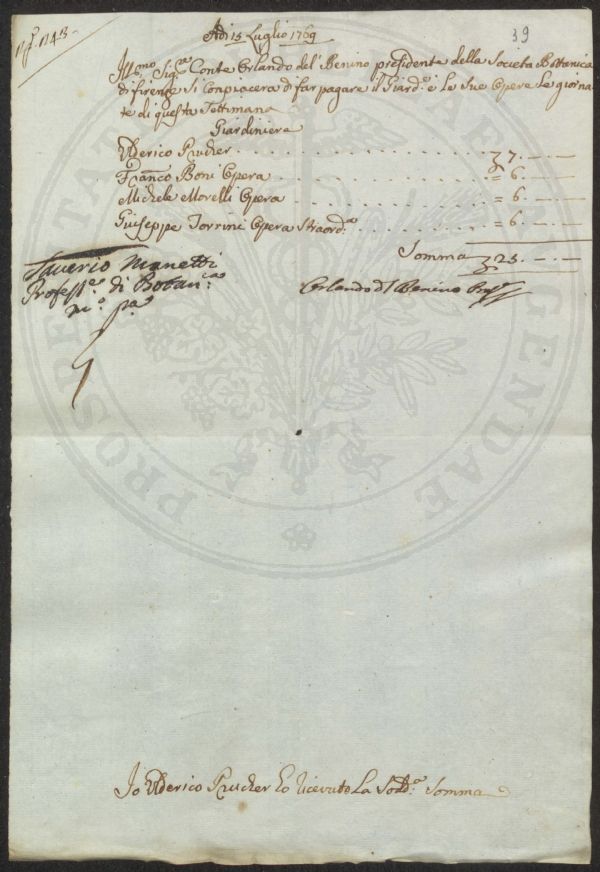 39
Adi 15 Luglio 1769
Ill.mo Sig.re Conte Orlando del' Benino presidente della Societa Bottanica
di firenze si Conpiacera di far pagare il Giard.e e le Sue Opere Le giorna
te di questa Settimana
Giardiniere
Ulderico Prucker . . . . . . . . . . 7. — —
Franco Boni Opera . . . . . . . . . . = 6. — —
Michele Morelli Opera . . . . . . . . . . = 6. — —
Guiseppe Torrini Opera Straord.a . . . . . . . = 6. — —
Somma 25. — —
Saverio Manetti
Profess.e di Botan.ca
m.o p.a
Orlando del Benino Pres.te
Io Ulderico Prucker ho ricevuto La Sod.a Somma
PROSPERITATI PUBLICAE AUGENDAE